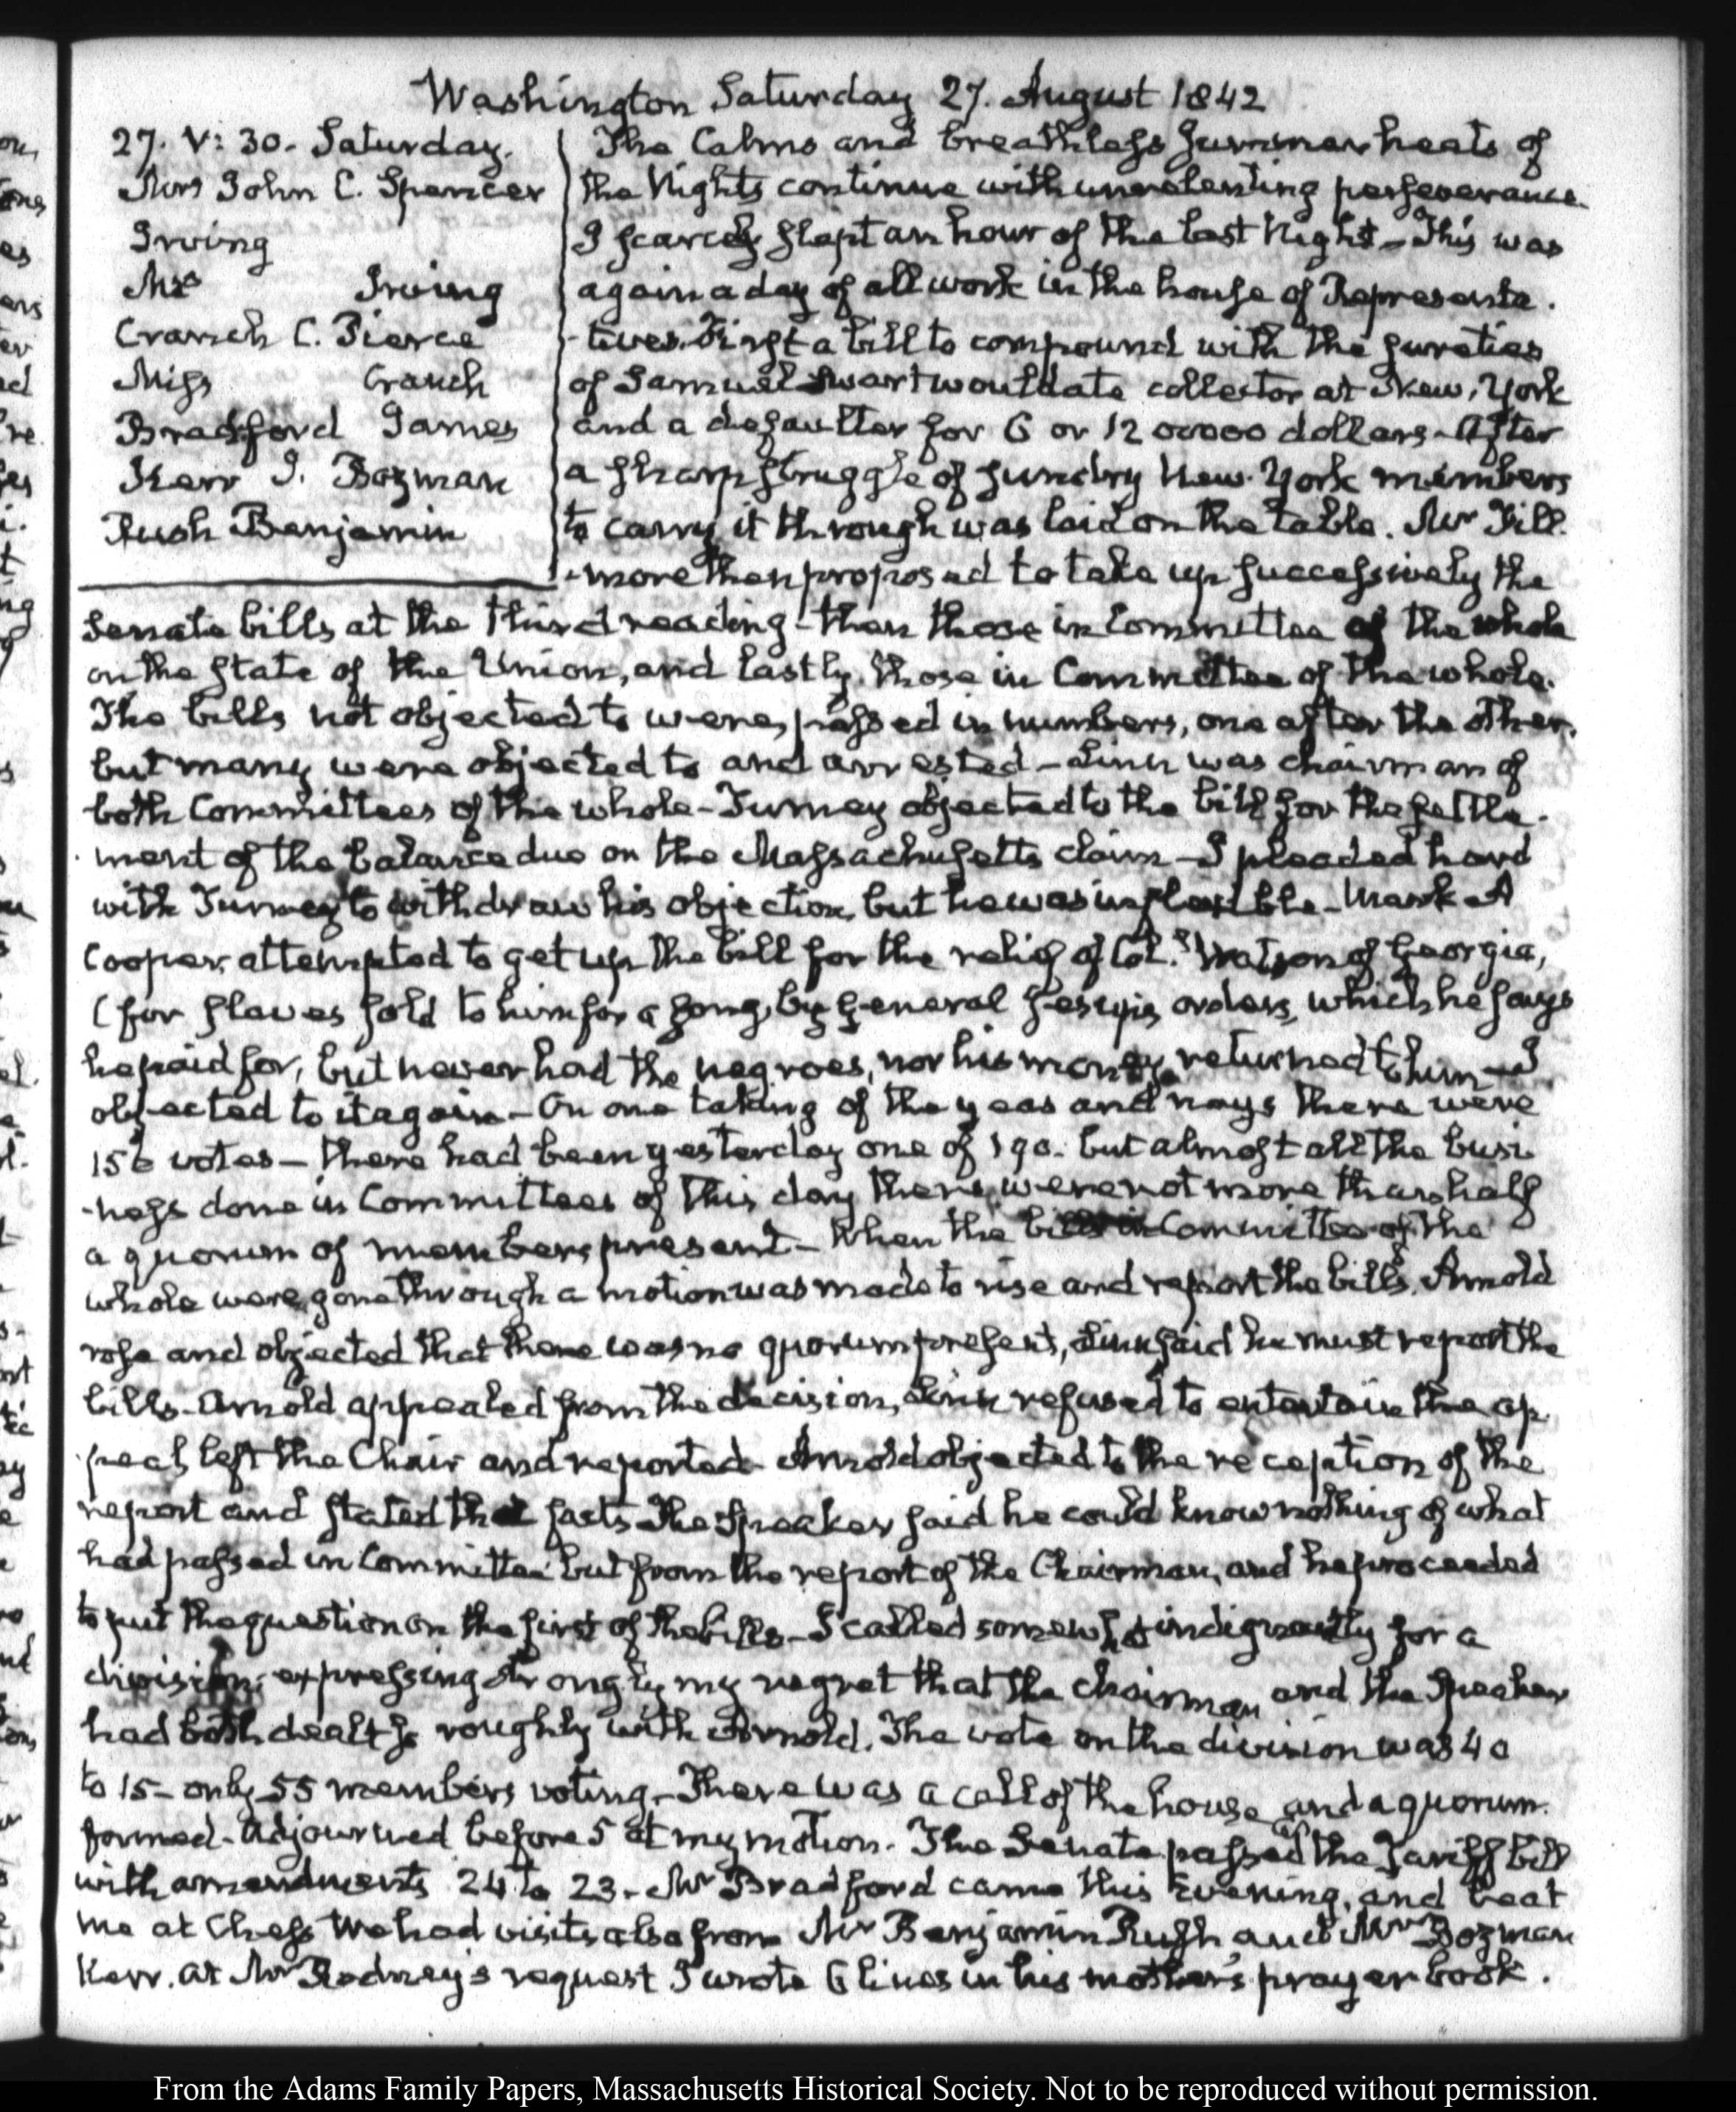 Washington Saturday 27. August 1842
27. V: 30. Saturday.
Mrs John C. Spencer
Irving
Mrs Irving
Cranch C. Pierce
Miss Cranch
Bradford James
Kerr J. Bozman
Rush Benjamin
The Calms and breathless summer heats of
the Nights continue with unrelenting perseverance.
I scarcely slept an hour of the last Night – This was
again a day of all work in the house of Representa.
-tives. First a bill to compound with the sureties
of Samuel Swartwout late collector at New, York
and a defaulter for 6 or 12 00000 dollars – After
a sharp struggle of sundry New York members
to carry it through was laid on the table. Mr Fill.
-more then proposed to take up successively the
Senate bills at the third reading – then those in Committee of the whole
on the state of the Union, and lastly, those in Committee of the whole.
The bills not objected to were, passed in numbers, one after the other.
but many were objected to and arrested – Linn was chairman of
both Committees of the whole – Turney objected to the bill for the settle-
ment of the balance due on the Massachusetts claim – I pleaded hard
with Turney to withdraw his objection, but he was inflexible – Mark A
Cooper attempted to get up the bill for the relief of Col. Watson of Georgia,
(for slaves sold to him for a song, by General Jesup's orders, which he says
he paid for, but never had the negroes, nor his money returned to him – I
objected to it again – On one taking of the yeas and nays there were
156 votes – there had been yesterday one of 190. but almost all the busi
-ness done in Committees of this day there were not more than half
a quorum of members present – When the bills in Committee of the
whole were gone through a motion was made to rise and report the bills. Arnold
rose and objected that there was no quorum present, Linn said he must report the
bills – Arnold appealed from the decision, Linn refused to entertain the ap
-peal, left the Chair and reported – Arnold objected to the reception of the
report and stated the facts – The Speaker said he could know nothing of what
had passed in Committee but from the report of the Chairman, and he proceeded
to put the question on the first of the bills – I called somewhat indignantly for a
division, expressing strongly my regret that the chairman and the Speaker
had both dealt so roughly with Arnold. The vote on the division was 40
to 15 – only 55 members voting – There was a call of the house and a quorum
formed – Adjourned before 5 at my motion. The Senate passed the Tariff bill
with amendments 24 to 23 – Mr Bradford came this Evening, and beat
me at Chess We had visits also from Mr Benjamin Rush and Mr Bozman
Kerr. At Mr Rodney's request I wrote 6 lines in his mother's prayer book.
From the Adams Family Papers, Massachusetts Historical Society. Not to be reproduced without permission.